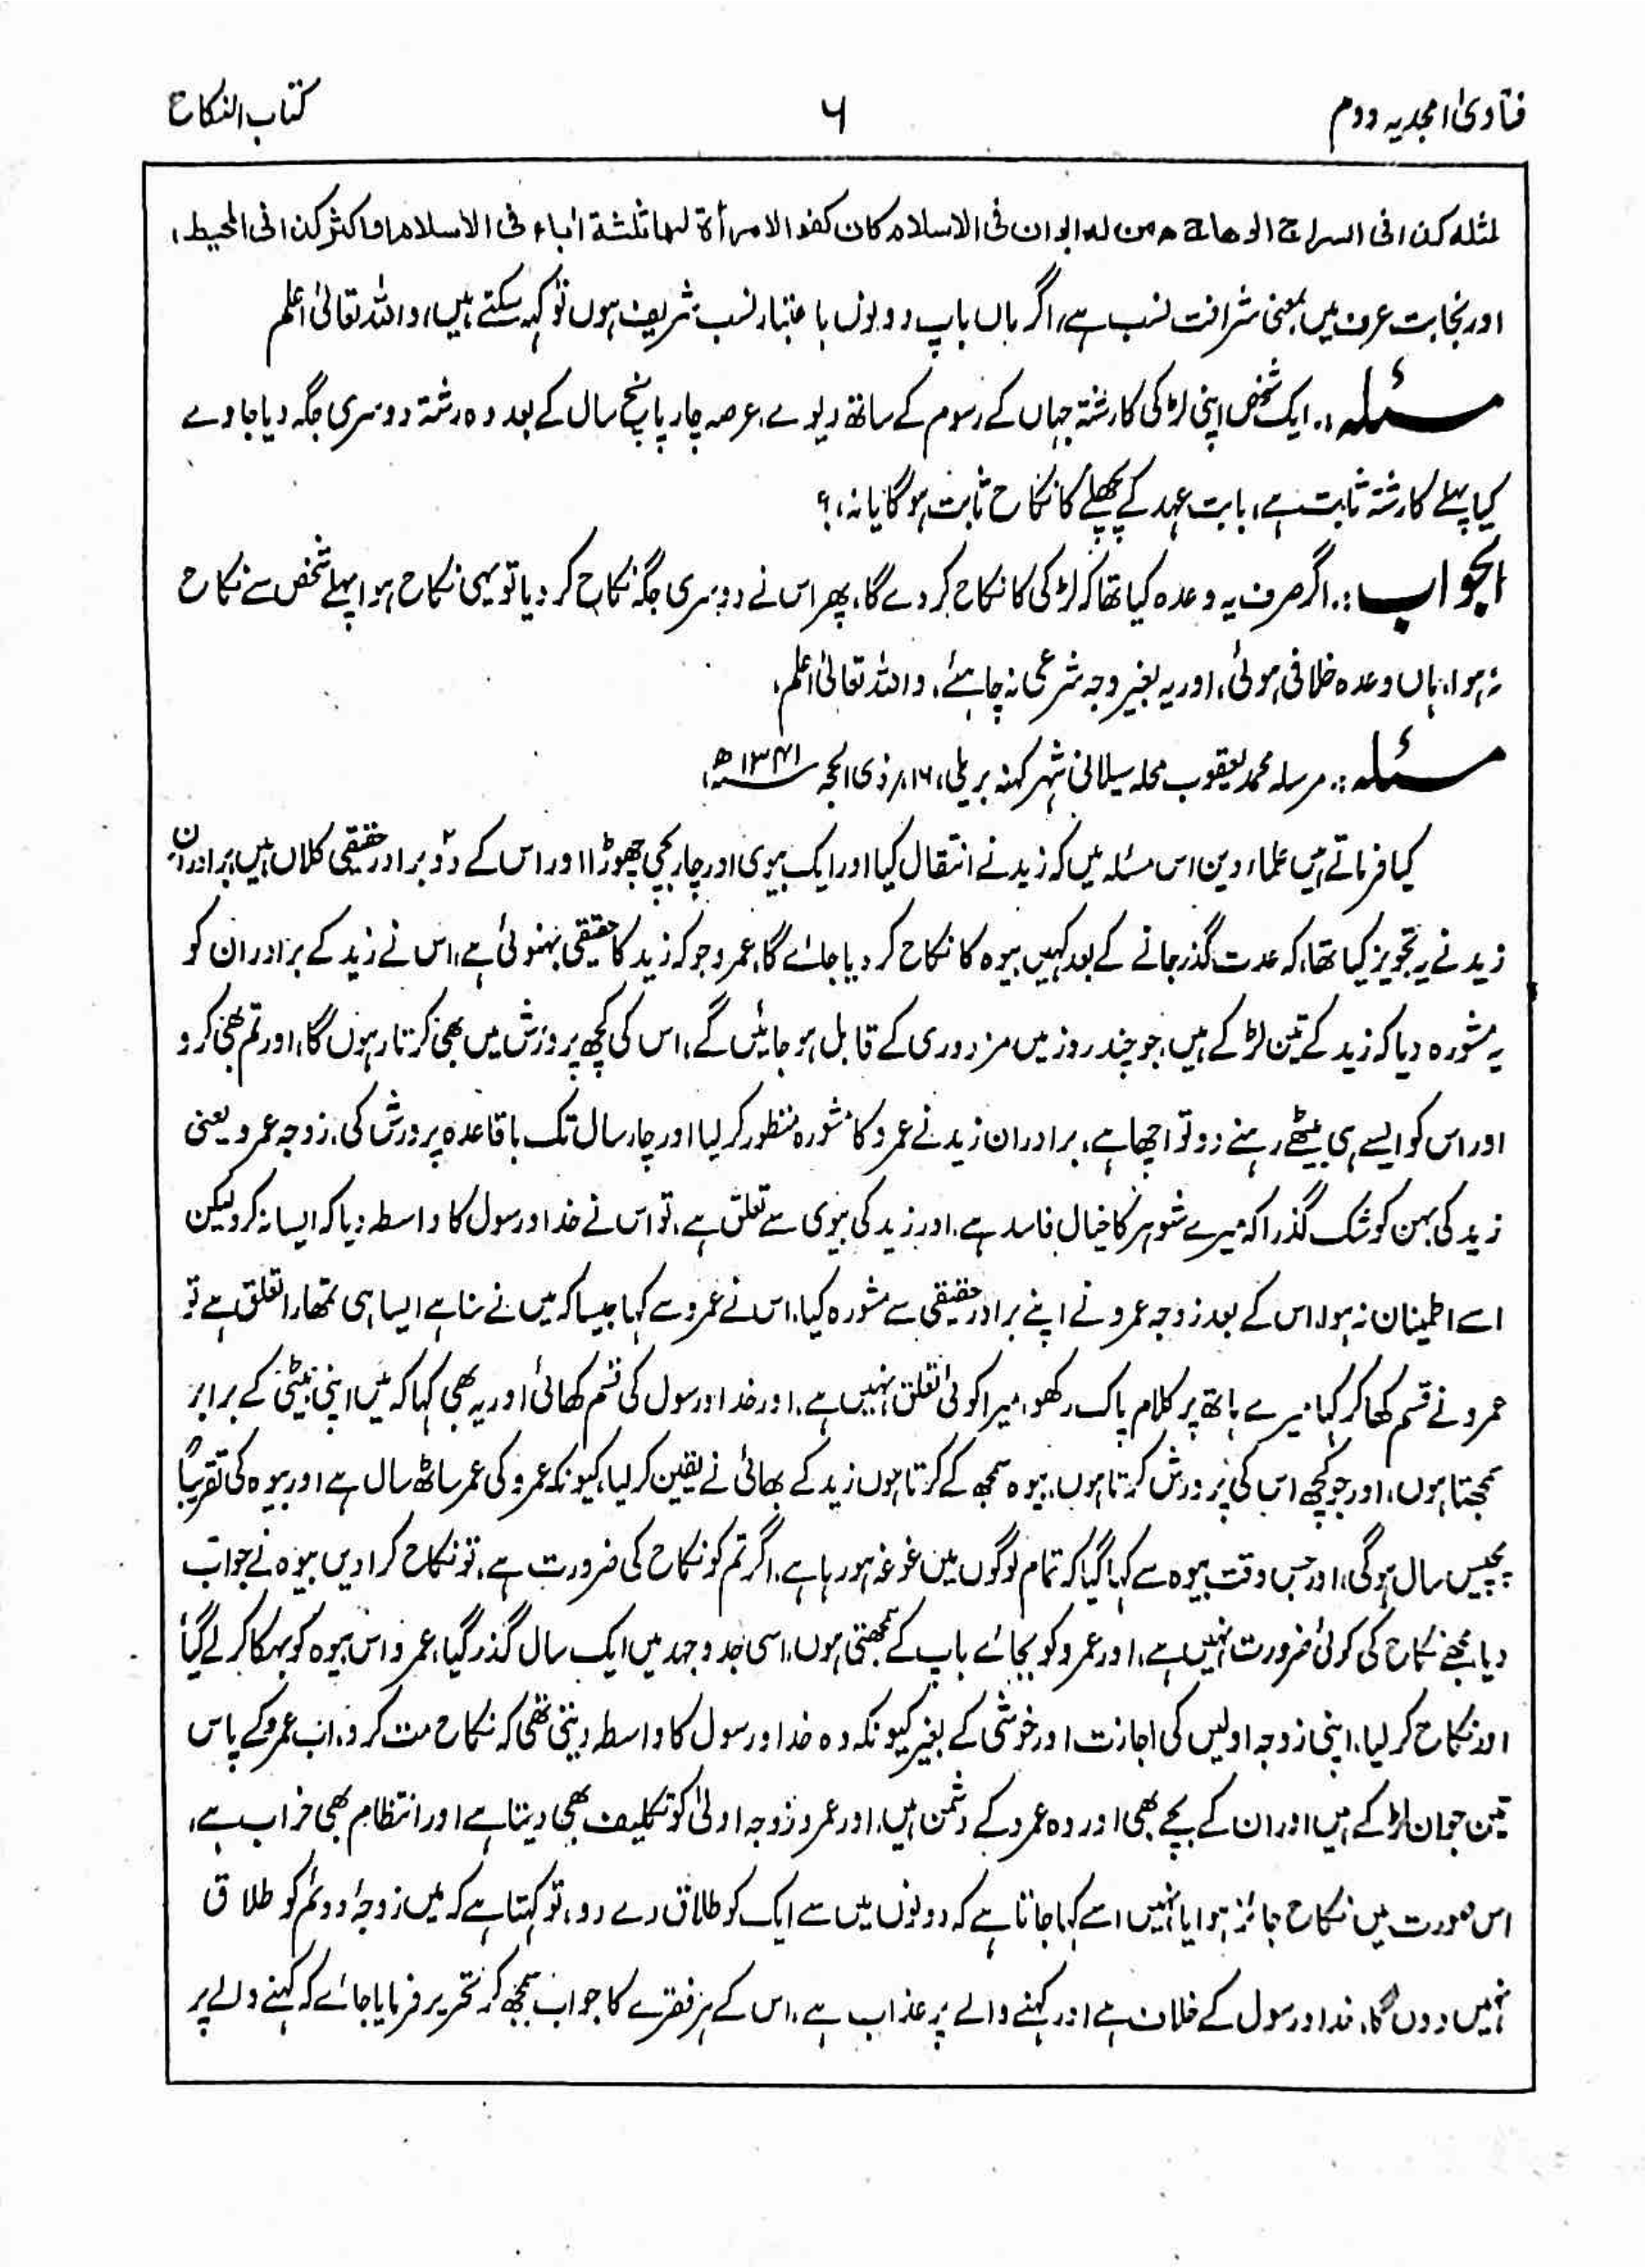 فتاویٰ امجدیہ دوم
۶
کتاب النکاح
لمثلہ کذا فی السراج الوھاج ومن لہ ابوان فی الاسلام کان کفوا لامرأۃ لہا ثلثۃ اٰباء فی الاسلام او اکثر کذا فی المحیط،
اور نجابت عرف میں بمعنی شرافت نسب ہے، اگر ماں باپ دونوں باعتبار نسب شریف ہوں تو کہہ سکتے ہیں، واللہ تعالیٰ اعلم
مسئلہ:۔ ایک شخص اپنی لڑکی کا رشتہ جہاں کے رسوم کے ساتھ دیوے، عرصہ چار پانچ سال کے بعد وہ رشتہ دوسری جگہ دیا جاوے
کیا پہلے کا رشتہ ثابت ہے، بابت عہد کے پچھلے کا نکاح ثابت ہوگا یا نہ، ؟
الجواب:۔ اگر صرف یہ وعدہ کیا تھا کہ لڑکی کا نکاح کر دے گا، پھر اس نے دوسری جگہ نکاح کر دیا تو یہی نکاح ہوا پہلے شخص سے نکاح
نہ ہوا، ہاں وعدہ خلافی ہوئی، اور یہ بغیر وجہ شرعی نہ چاہئے، واللہ تعالیٰ اعلم،
مسئلہ:۔ مرسلہ محمد یعقوب محلہ سیلانی شہر کہنہ بریلی، ۱۶؍ ذی الحجہ ۱۳۴۱ھ،
کیا فرماتے ہیں علماء دین اس مسئلہ میں کہ زید نے انتقال کیا اور ایک بیوی اور چار بچی چھوڑا اور اس کے دو برادر حقیقی کلاں ہیں برادران
زید نے یہ تجویز کیا تھا، کہ عدت گذر جانے کے بعد کہیں بیوہ کا نکاح کر دیا جائے گا، عمرو جو کہ زید کا حقیقی بہنوئی ہے، اس نے زید کے برادران کو
یہ مشورہ دیا کہ زید کے تین لڑکے ہیں، جو چند روز میں مزدوری کے قابل ہو جائیں گے، اس کی کچھ پرورش میں بھی کرتا رہوں گا، اور تم بھی کرو
اور اس کو ایسے ہی بیٹھے رہنے دو تو اچھا ہے، برادران زید نے عمرو کا مشورہ منظور کر لیا اور چار سال تک باقاعدہ پرورش کی، زوجہ عمرو یعنی
زید کی بہن کو شک گذرا کہ میرے شوہر کا خیال فاسد ہے، اور زید کی بیوی سے تعلق ہے، تو اس نے خدا و رسول کا واسطہ دیا کہ ایسا نہ کرو لیکن
اسے اطمینان نہ ہوا، اس کے بعد زوجہ عمرو نے اپنے برادر حقیقی سے مشورہ کیا، اس نے عمرو سے کہا جیسا کہ میں نے سنا ہے ایسا ہی تمھارا تعلق ہے تو
عمرو نے قسم کھا کر کہا میرے ہاتھ پر کلام پاک رکھو، میرا کوئی تعلق نہیں ہے، اور خدا اور رسول کی قسم کھائی اور یہ بھی کہا کہ میں اپنی بیٹی کے برابر
سمجھتا ہوں، اور جو کچھ اس کی پرورش کرتا ہوں، بیوہ سمجھ کے کرتا ہوں زید کے بھائی نے یقین کر لیا، کیونکہ عمرو کی عمر ساٹھ سال ہے اور بیوہ کی تقریباً
پچیس سال ہوگی، اور جس وقت بیوہ سے کہا گیا کہ تمام لوگوں میں غوغہ ہو رہا ہے، اگر تم کو نکاح کی ضرورت ہے، تو نکاح کرا دیں بیوہ نے جواب
دیا مجھے نکاح کی کوئی ضرورت نہیں ہے، اور عمرو کو بجائے باپ کے سمجھتی ہوں، اسی جد و جہد میں ایک سال گذر گیا، عمرو اس بیوہ کو بہکا کر لے گیا
اور نکاح کر لیا، اپنی زوجہ اولیں کی اجازت اور خوشی کے بغیر کیونکہ وہ خدا و رسول کا واسطہ دیتی تھی کہ نکاح مت کرو، اب عمرو کے پاس
تین جوان لڑکے ہیں اور ان کے بچے بھی اور وہ عمرو کے دشمن ہیں، اور عمرو زوجہ اولیٰ کو تکلیف بھی دیتا ہے اور انتظام بھی خراب ہے،
اس صورت میں نکاح جائز ہوا یا نہیں، اسے کہا جاتا ہے کہ دونوں میں سے ایک کو طلاق دے دو، تو کہتا ہے کہ میں زوجہ دوئم کو طلاق
نہیں دوں گا، خدا و رسول کے خلاف ہے اور کہنے والے پر عذاب ہے، اس کے ہر فقرے کا جواب سمجھ کر تحریر فرمایا جائے کہ کہنے والے پر